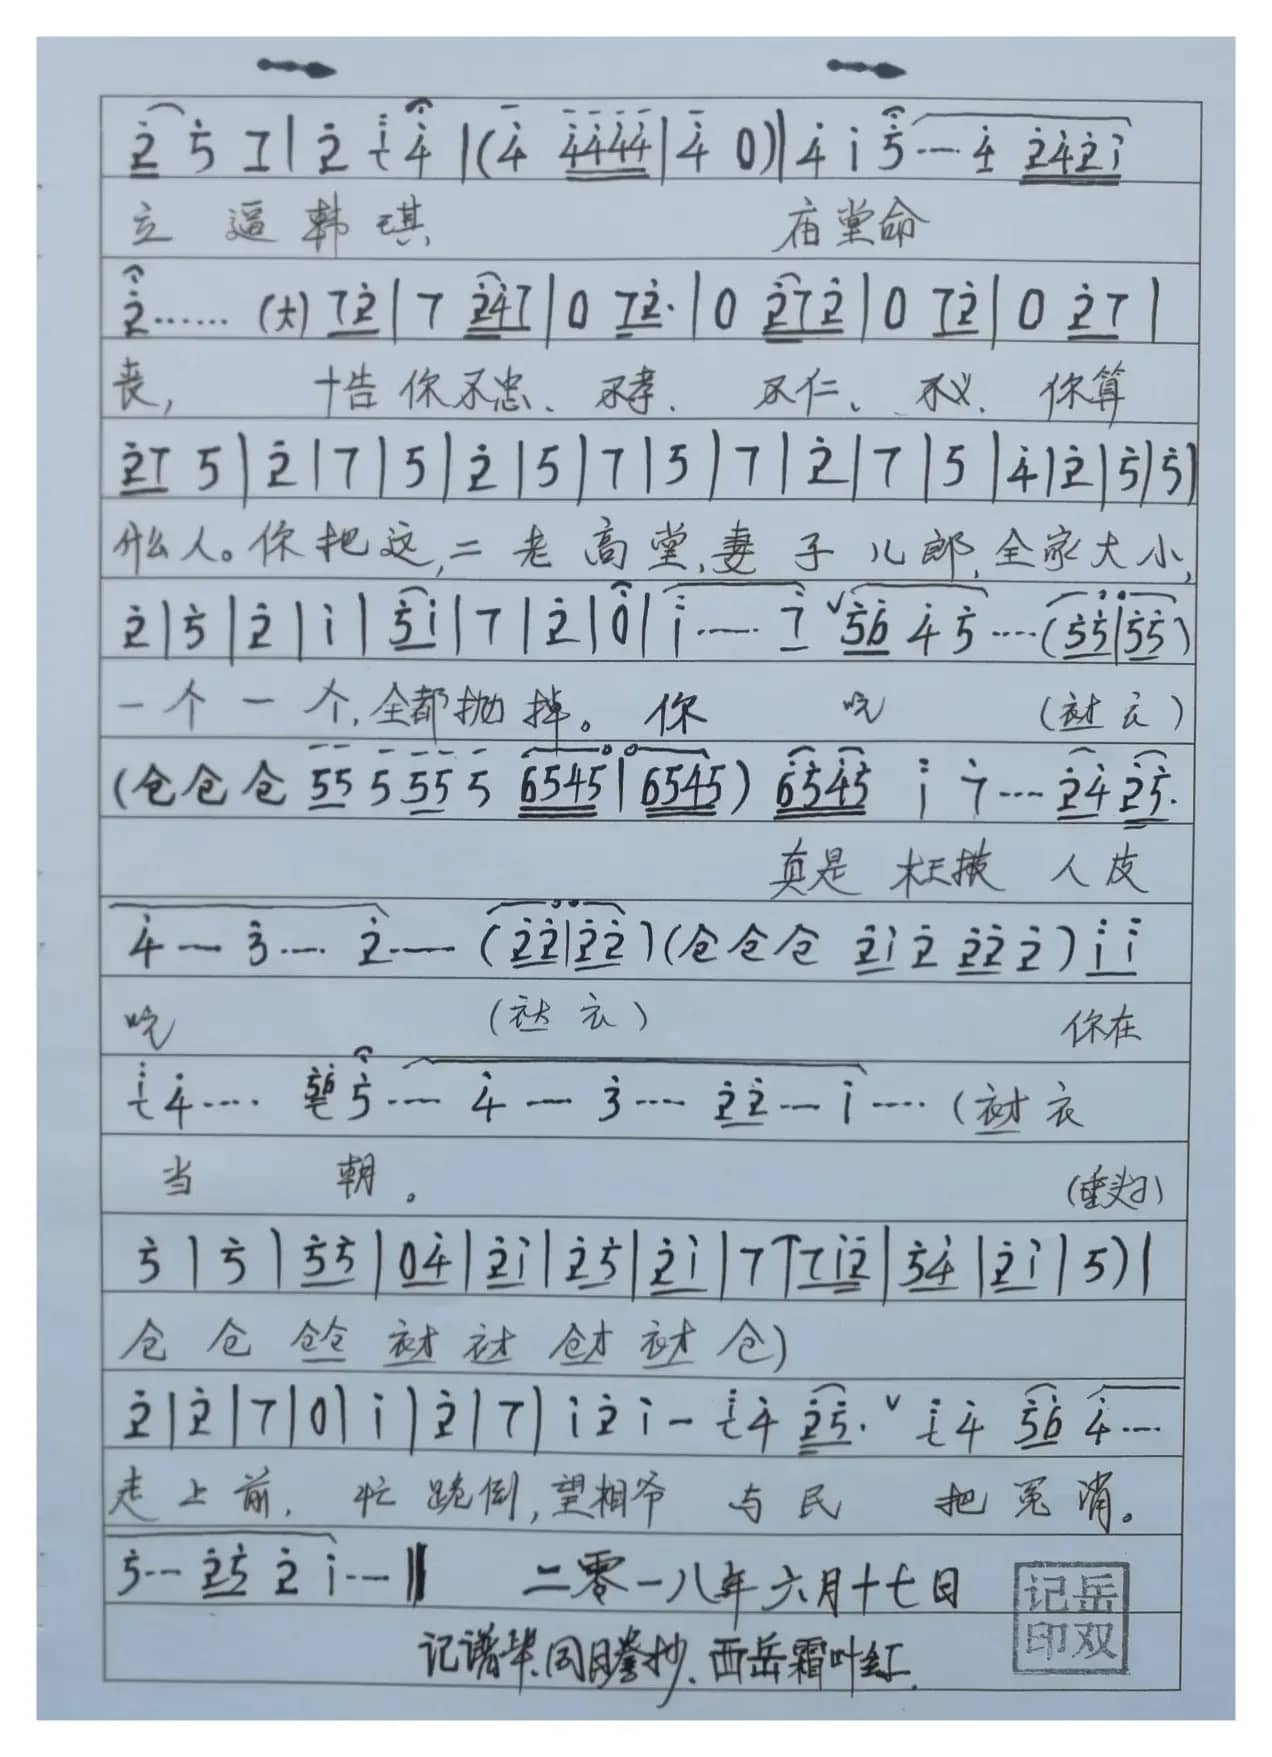 2̇ 5̇ 7 | 2̇ 1̇ 7 4̇ | (4̇ 4̇4̇4̇4̇ | 4̇ 0) | 4̇ 1̇ 5̇ — 4̇ 2̇4̇2̇1̇
立 逼 韩 琪 庙堂命
2̇…… (大) 72̇ | 7 2̇4̇7 | 0 72̇· | 0 2̇72̇ | 0 72̇ | 0 2̇7 |
丧, 十告你不忠、不孝、不仁、不义、你算
2̇7 5 | 2̇ | 7 | 5 | 2̇ | 5 | 7 | 5 | 7 | 2̇ | 7 | 5 | 4̇ | 2̇ | 5̇ | 5̇ |
什么人。你把这,二老高堂,妻子儿郎,全家大小,
2̇ | 5̇ | 2̇ | 1̇ | 5̇1̇ | 7 | 2̇ | 0 | 1̇ …… 7 ∨ 5̇6̇ 4̇ 5̇ …… (5̇5̇ | 5̇5̇)
一个一个,全都抛掉。你 吃 (衣)
(仓仓仓 55 5 55 5 6545 | 6545) 6̇5̇4̇5̇ 1̇ 7 …… 2̇4̇ 2̇5̇·
真是枉披人皮
4̇ — 3̇ …… 2̇ …… (2̇2̇ | 2̇2̇) (仓仓仓 2̇1̇ 2̇ 2̇2̇ 2̇) 1̇ 1̇
吃 (衣) 你在
4̇ …… 5̇ …… 4̇ — 3̇ …… 2̇2̇ — 1̇ …… (衣才衣
当 朝。 (垂头)
5̇ | 5̇ | 5̇5̇ | 04̇ | 2̇1̇ | 2̇5̇ | 2̇1̇ | 7 | 71̇2̇ | 5̇4̇ | 2̇1̇ | 5) |
仓 仓 仓仓 衣才 衣才 仓才 衣才 仓)
2̇ | 2̇ | 7 | 0 | 1̇ | 2̇ | 7 | 1̇ 2̇ 1̇ — 4̇ 2̇5̇· ∨ 4̇ 5̇6̇ 4̇ ……
走上前, 忙跪倒,望相爷 与民 把冤消。
5̇ …… 2̇5̇ 2̇ 1̇ …… ‖ 二零一八年六月十七日
记谱毕.同月誊抄.西岳霜叶红.
岳双
记印